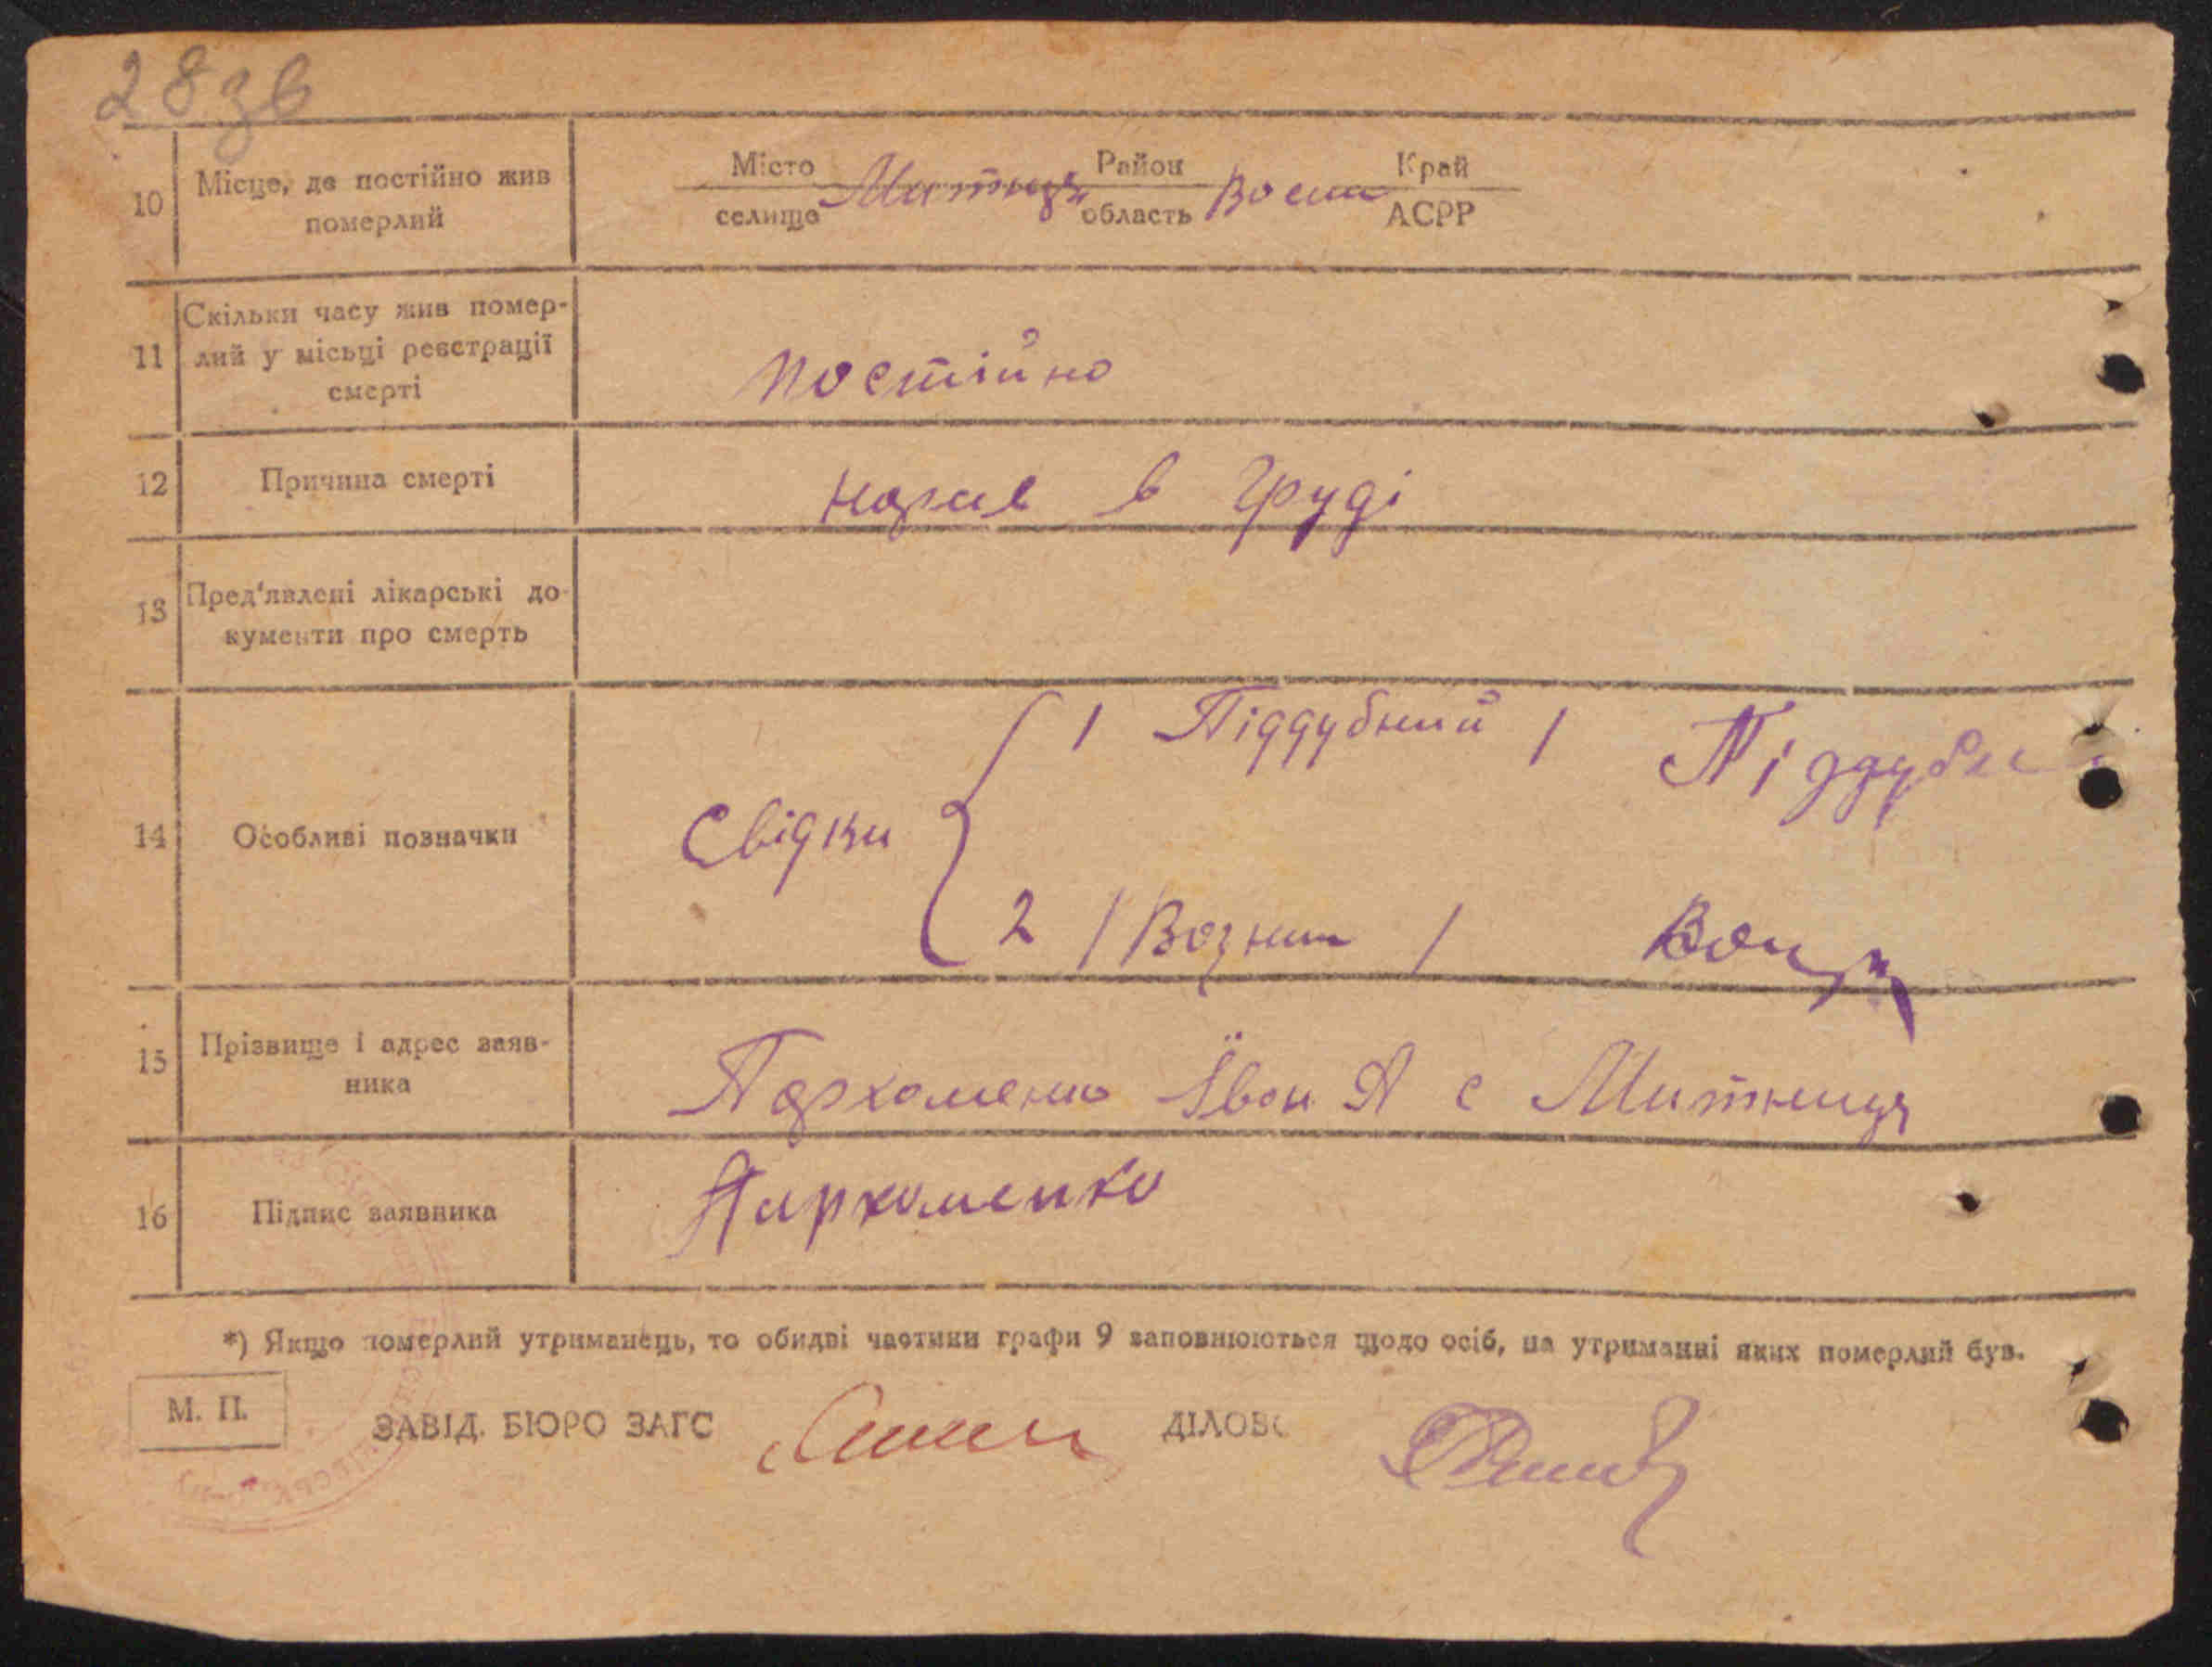 28зв
10 Місце, де постійно жив померлий
Місто селище Митниця Район область Васил Край АСРР
11 Скільки часу жив помер-
лий у місьці реєстрації
смерті
постійно
12 Причина смерті
нарив в груді
13 Пред'явлені лікарські до-
кументи про смерть
14 Особливі позначки
Свідки
1 Піддубний / Піддубн
2 / Возний /
15 Прізвище і адрес заяв-
ника
Пархоменко Іван Я с Митниця
16 Підпис заявника
Пархоменко
*) Якщо померлий утриманець, то обидві частини графи 9 заповнюються щодо осіб, на утриманні яких померлий був.
М. П.
ЗАВІД. БЮРО ЗАГС
ДІЛОВ